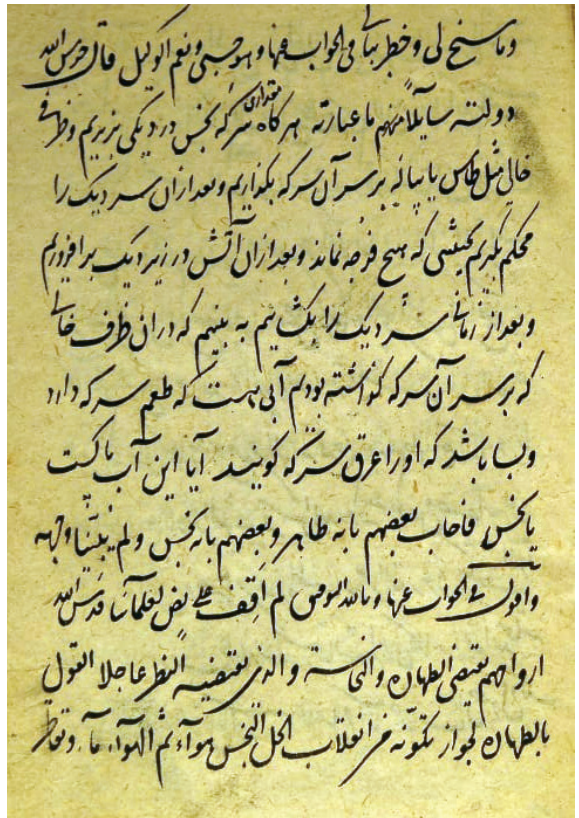 وما سنح لی وخطر ببالی فی الجواب عنها وهو حسبی ونعم الوکیل قال حرس الله
دولته سایلاً منهم ما عبارته هر کاه مقداری سرکه نجس در دیکی بریزیم وظرفی
خالی مثل طاس یا پیاله بر سر آن سرکه بکذاریم وبعد ازان سر دیک را
محکم بکیریم بحیثی که هیچ فرجه نماند وبعد ازان آتش در زیر دیک برافروزیم
وبعد از زمانی سر دیک را بکشاییم به بینیم که دران ظرف خالی
که بر سر آن سرکه کذاشته بودیم آبی هست که طعم سرکه دارد
وبسا باشد که او را عرق سرکه کویند آیا این آب پاکست
یا نجس فاجاب بعضهم بانه طاهر وبعضهم بانه نجس ولم یبیّنا وجهه
واقول فی الجواب عنها وبالله التوفیق لم اقف علی نص لعلمآئنا قدس الله
ارواحهم یقتضی الطهارة والنجاسة والذی یقتضیه النظر عاجلا القول
بالطهارة لجواز تکوّنه من انقلاب الخل النجس هوآء ثم الهوآء مآء وتقاطر